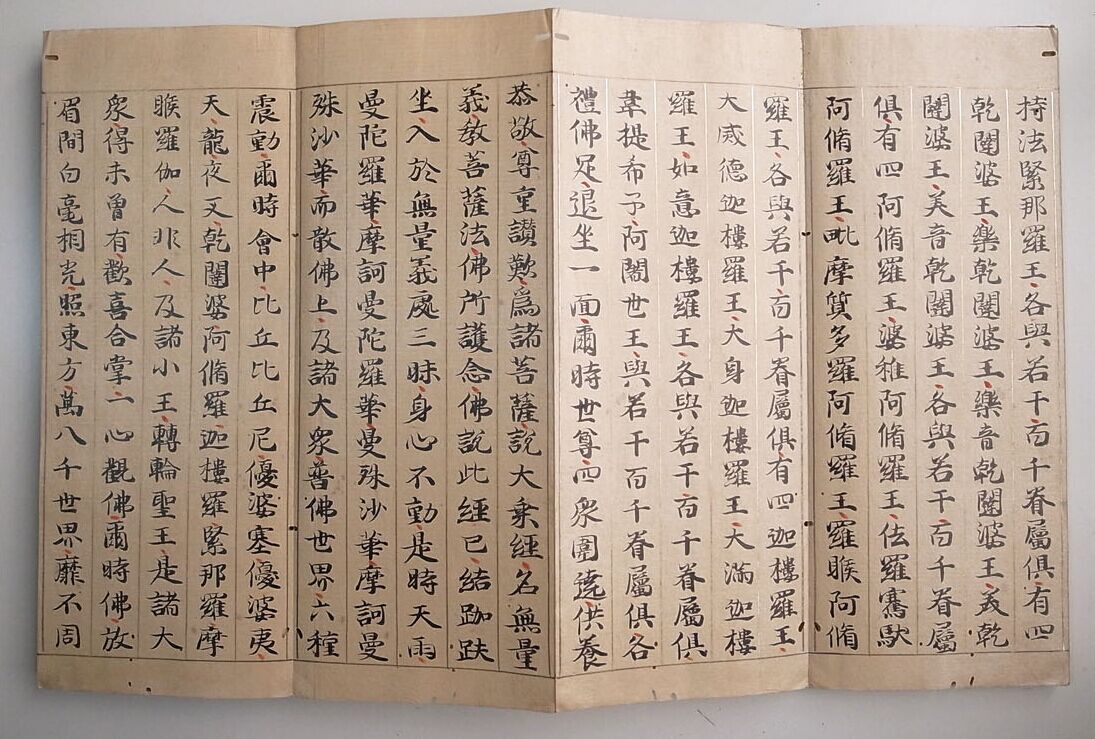 持法緊那羅王各與若干百千眷屬俱有四
乾闥婆王樂乾闥婆王樂音乾闥婆王美乾
闥婆王美音乾闥婆王各與若干百千眷屬
俱有四阿脩羅王婆稚阿脩羅王佉羅騫馱
阿脩羅王毗摩質多羅阿脩羅王羅睺阿脩
羅王各與若干百千眷屬俱有四迦樓羅王
大威德迦樓羅王大身迦樓羅王大滿迦樓
羅王如意迦樓羅王各與若干百千眷屬俱
韋提希子阿闍世王與若干百千眷屬俱各
禮佛足退坐一面爾時世尊四衆圍遶供養
恭敬尊重讃歎爲諸菩薩說大乘經名無量
義教菩薩法佛所護念佛說此經已結跏趺
坐入於無量義處三昧身心不動是時天雨
曼陀羅華摩訶曼陀羅華曼殊沙華摩訶曼
殊沙華而散佛上及諸大衆普佛世界六種
震動爾時會中比丘比丘尼優婆塞優婆夷
天龍夜叉乾闥婆阿脩羅迦樓羅緊那羅摩
睺羅伽人非人及諸小王轉輪聖王是諸大
衆得未曾有歡喜合掌一心觀佛爾時佛放
眉間白毫相光照東方萬八千世界靡不周